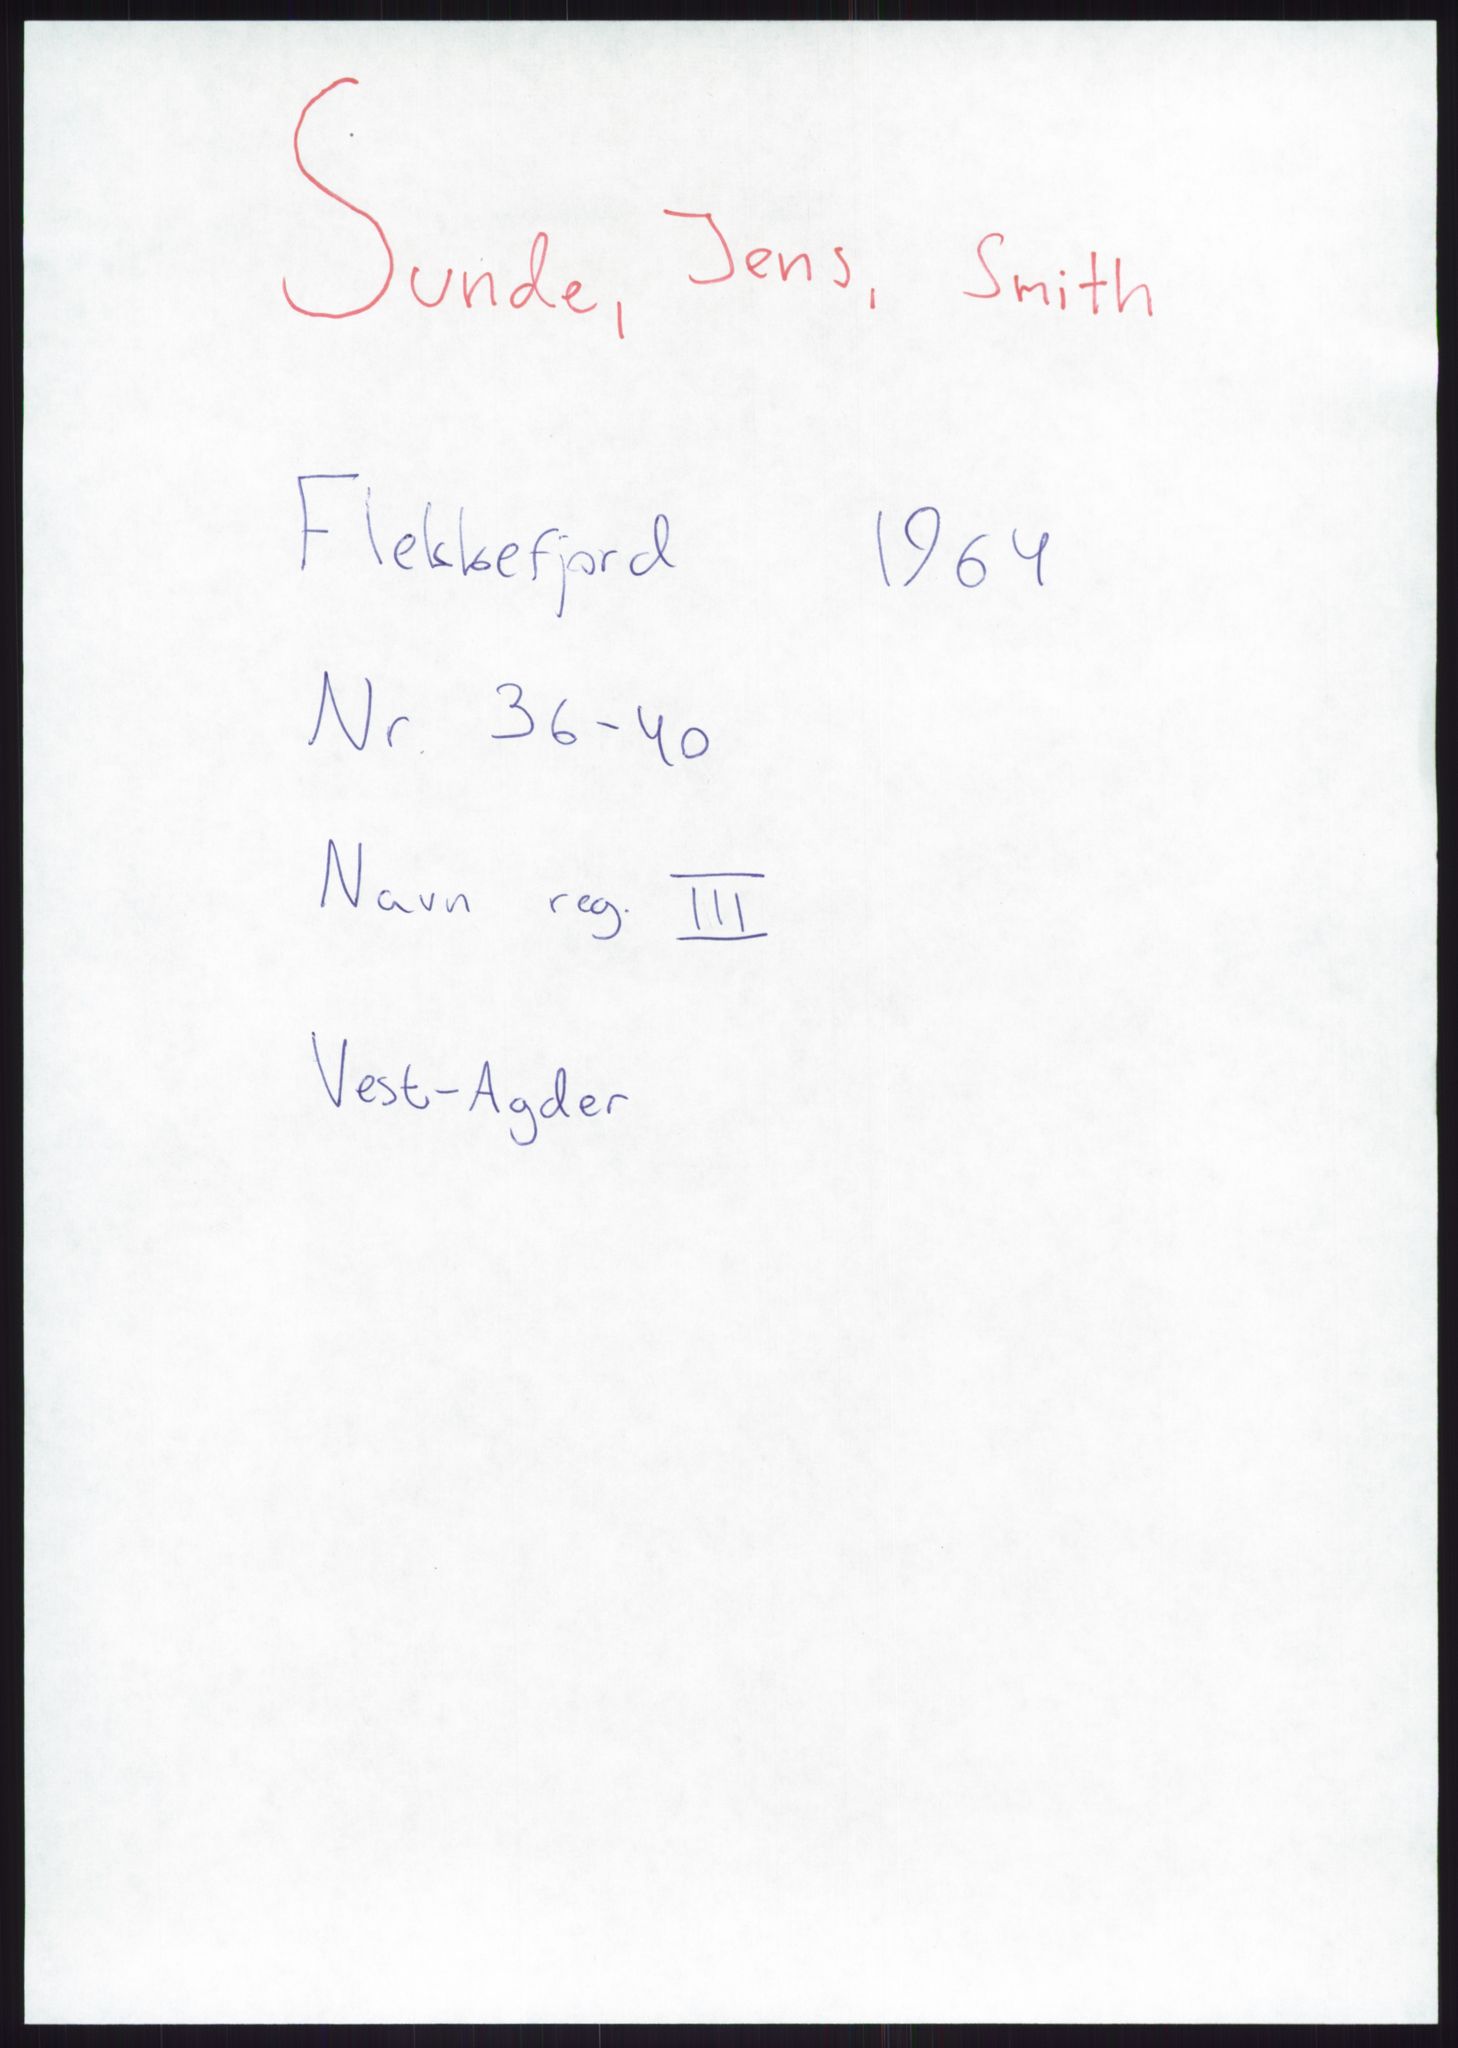 Sunde, Jens, Smith
Flekkefjord 1964
Nr. 36-40
Navn reg. III
Vest-Agder